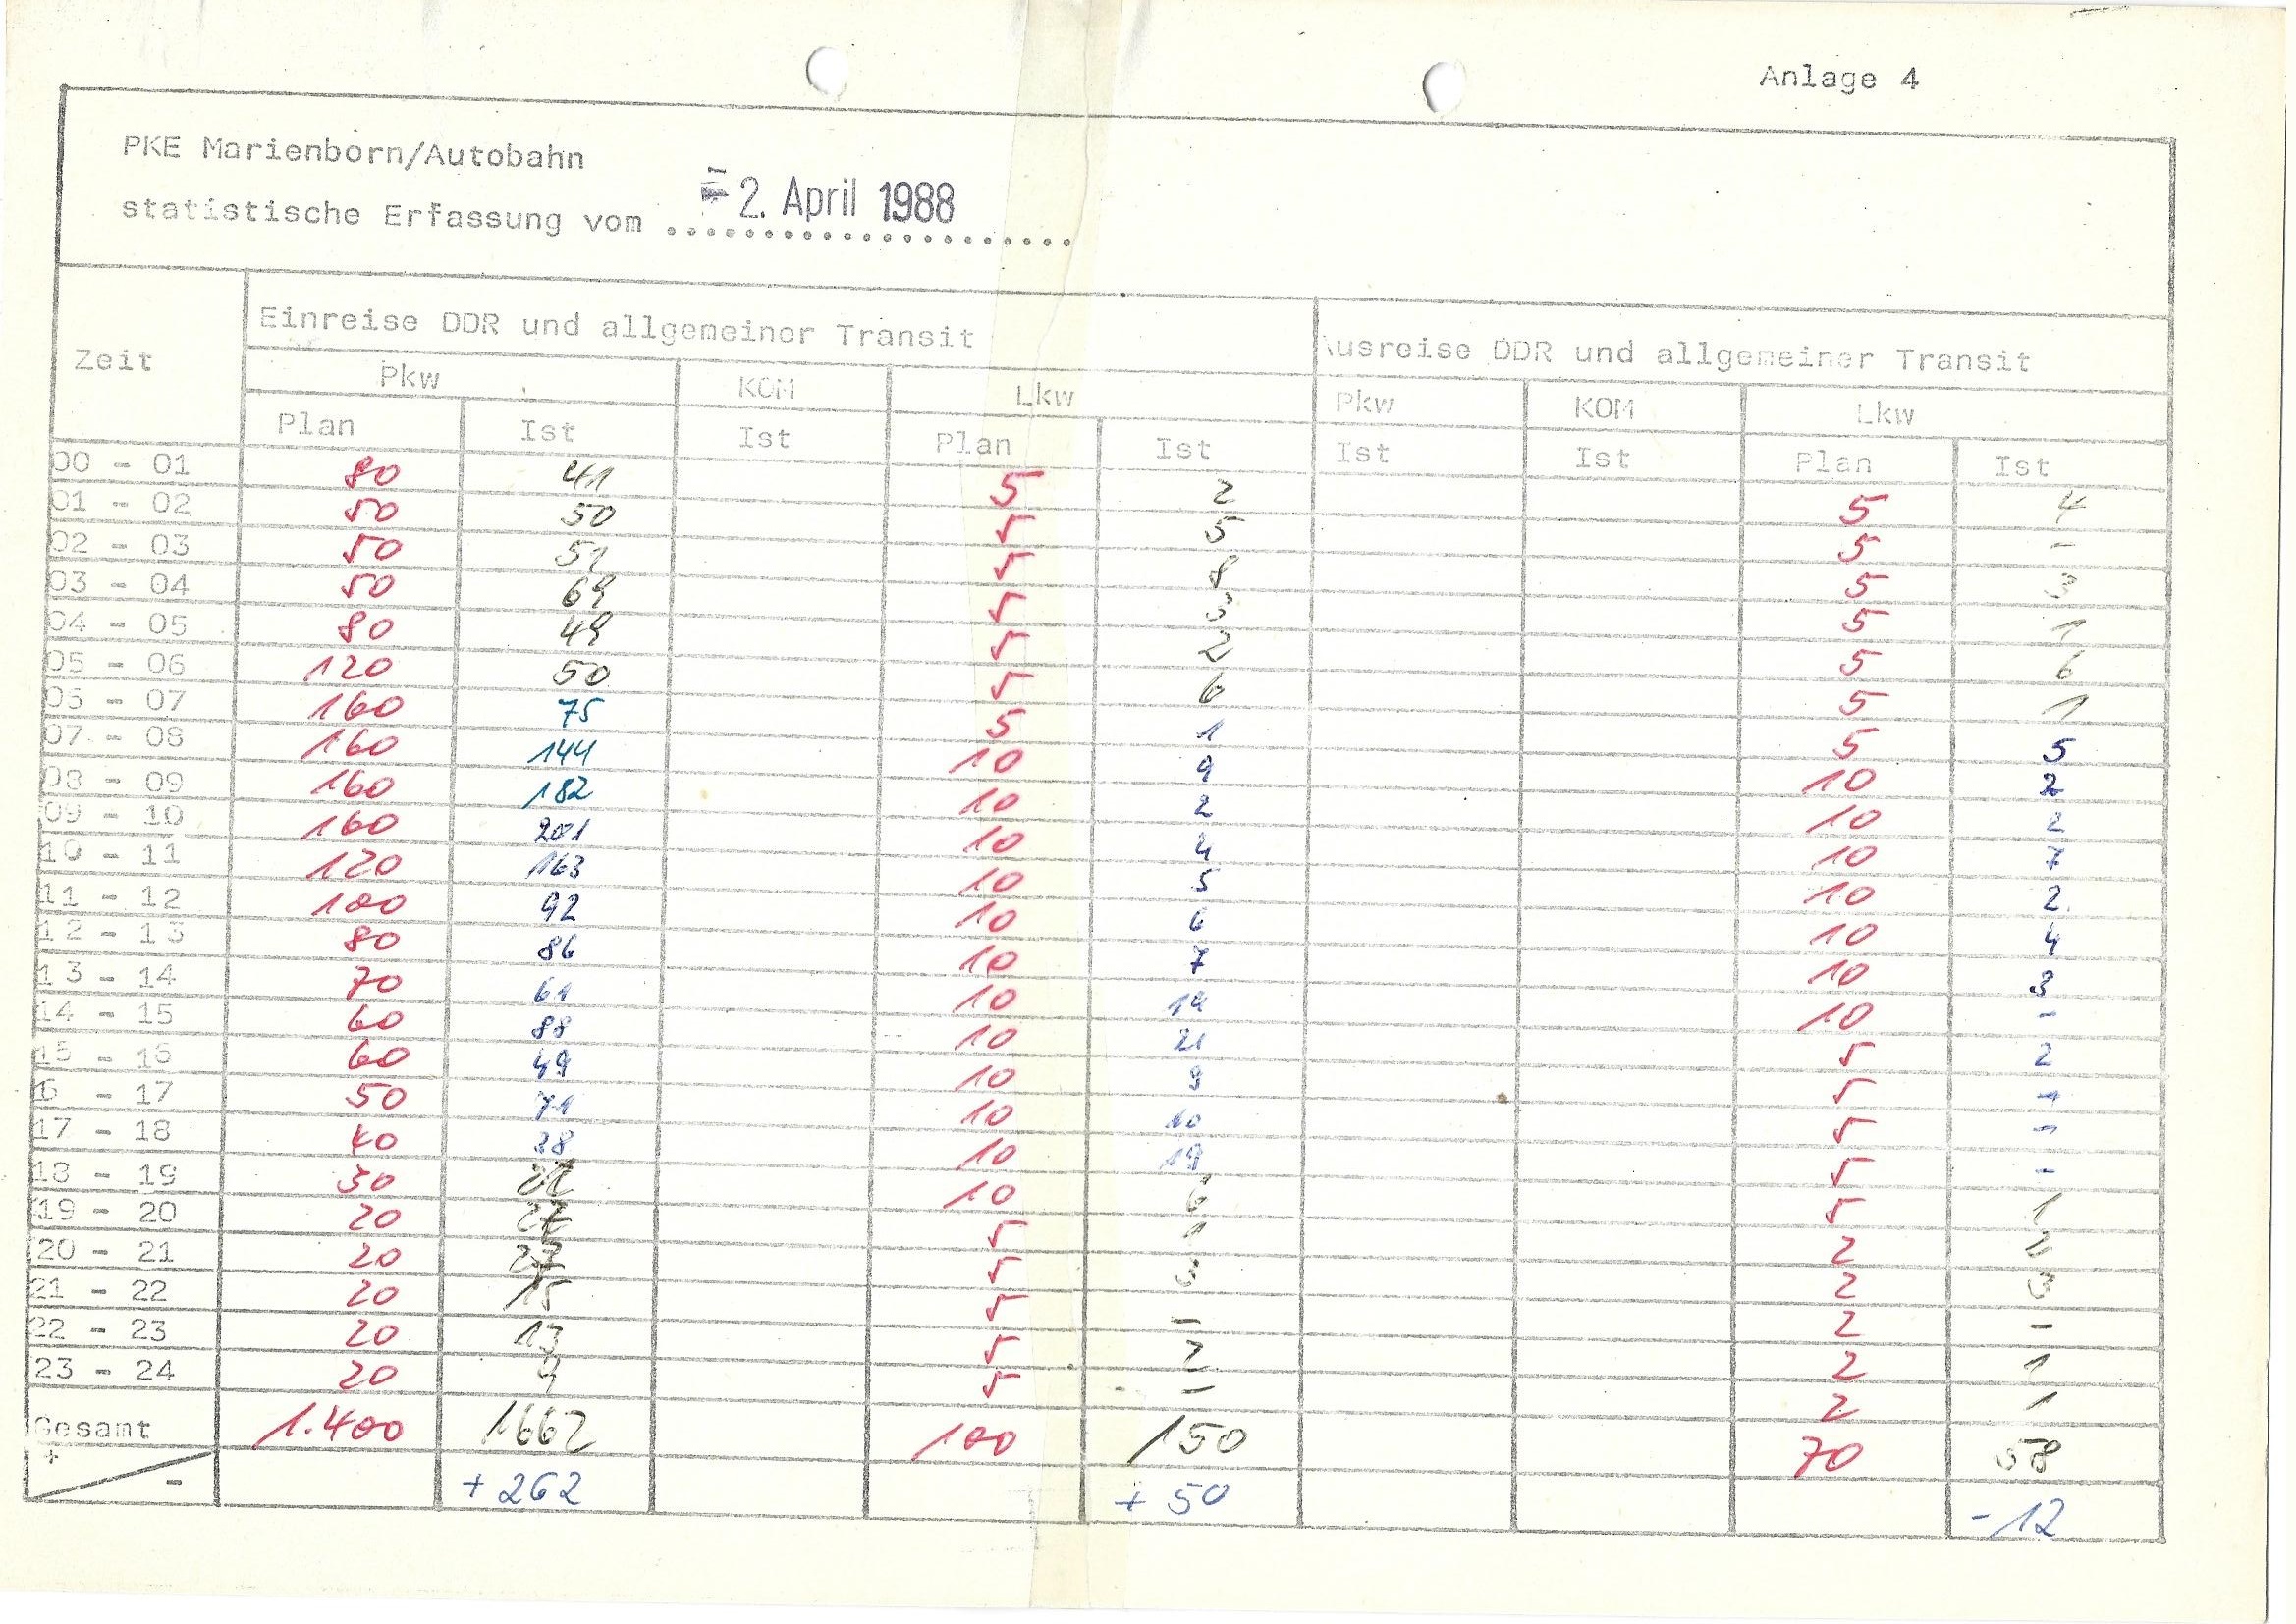 Anlage 4
PKE Marienborn/Autobahn
statistische Erfassung vom - 2. April 1988
Zeit Einreise DDR und allgemeiner Transit Ausreise DDR und allgemeiner Transit
Pkw KOM Lkw Pkw KOM Lkw
Plan Ist Ist Plan Ist Ist Ist Plan Ist
00 - 01 80 41 5 2 5 4
01 - 02 50 50 5 5 5 -
02 - 03 50 51 5 8 5 3
03 - 04 50 69 5 3 5 1
04 - 05 80 49 5 2 5 6
05 - 06 120 50 5 6 5 1
06 - 07 160 75 5 1 5 5
07 - 08 160 144 10 9 10 2
08 - 09 160 182 10 2 10 2
09 - 10 160 201 10 4 10 7
10 - 11 120 163 10 5 10 2
11 - 12 100 92 10 6 10 4
12 - 13 80 86 10 7 10 3
13 - 14 70 61 10 19 10 -
14 - 15 60 88 10 21 5 2
15 - 16 60 49 10 9 5 1
16 - 17 50 71 10 10 5 -
17 - 18 40 38 10 19 5 -
18 - 19 30 10 6 5 1
19 - 20 20 5 1 2
20 - 21 20 27 5 3 2 3
21 - 22 20 15 5 - 2 -
22 - 23 20 13 5 2 2 1
23 - 24 20 9 5 - 2 1
Gesamt 1.400 1662 100 150 70 58
+ - + 262 + 50 - 12